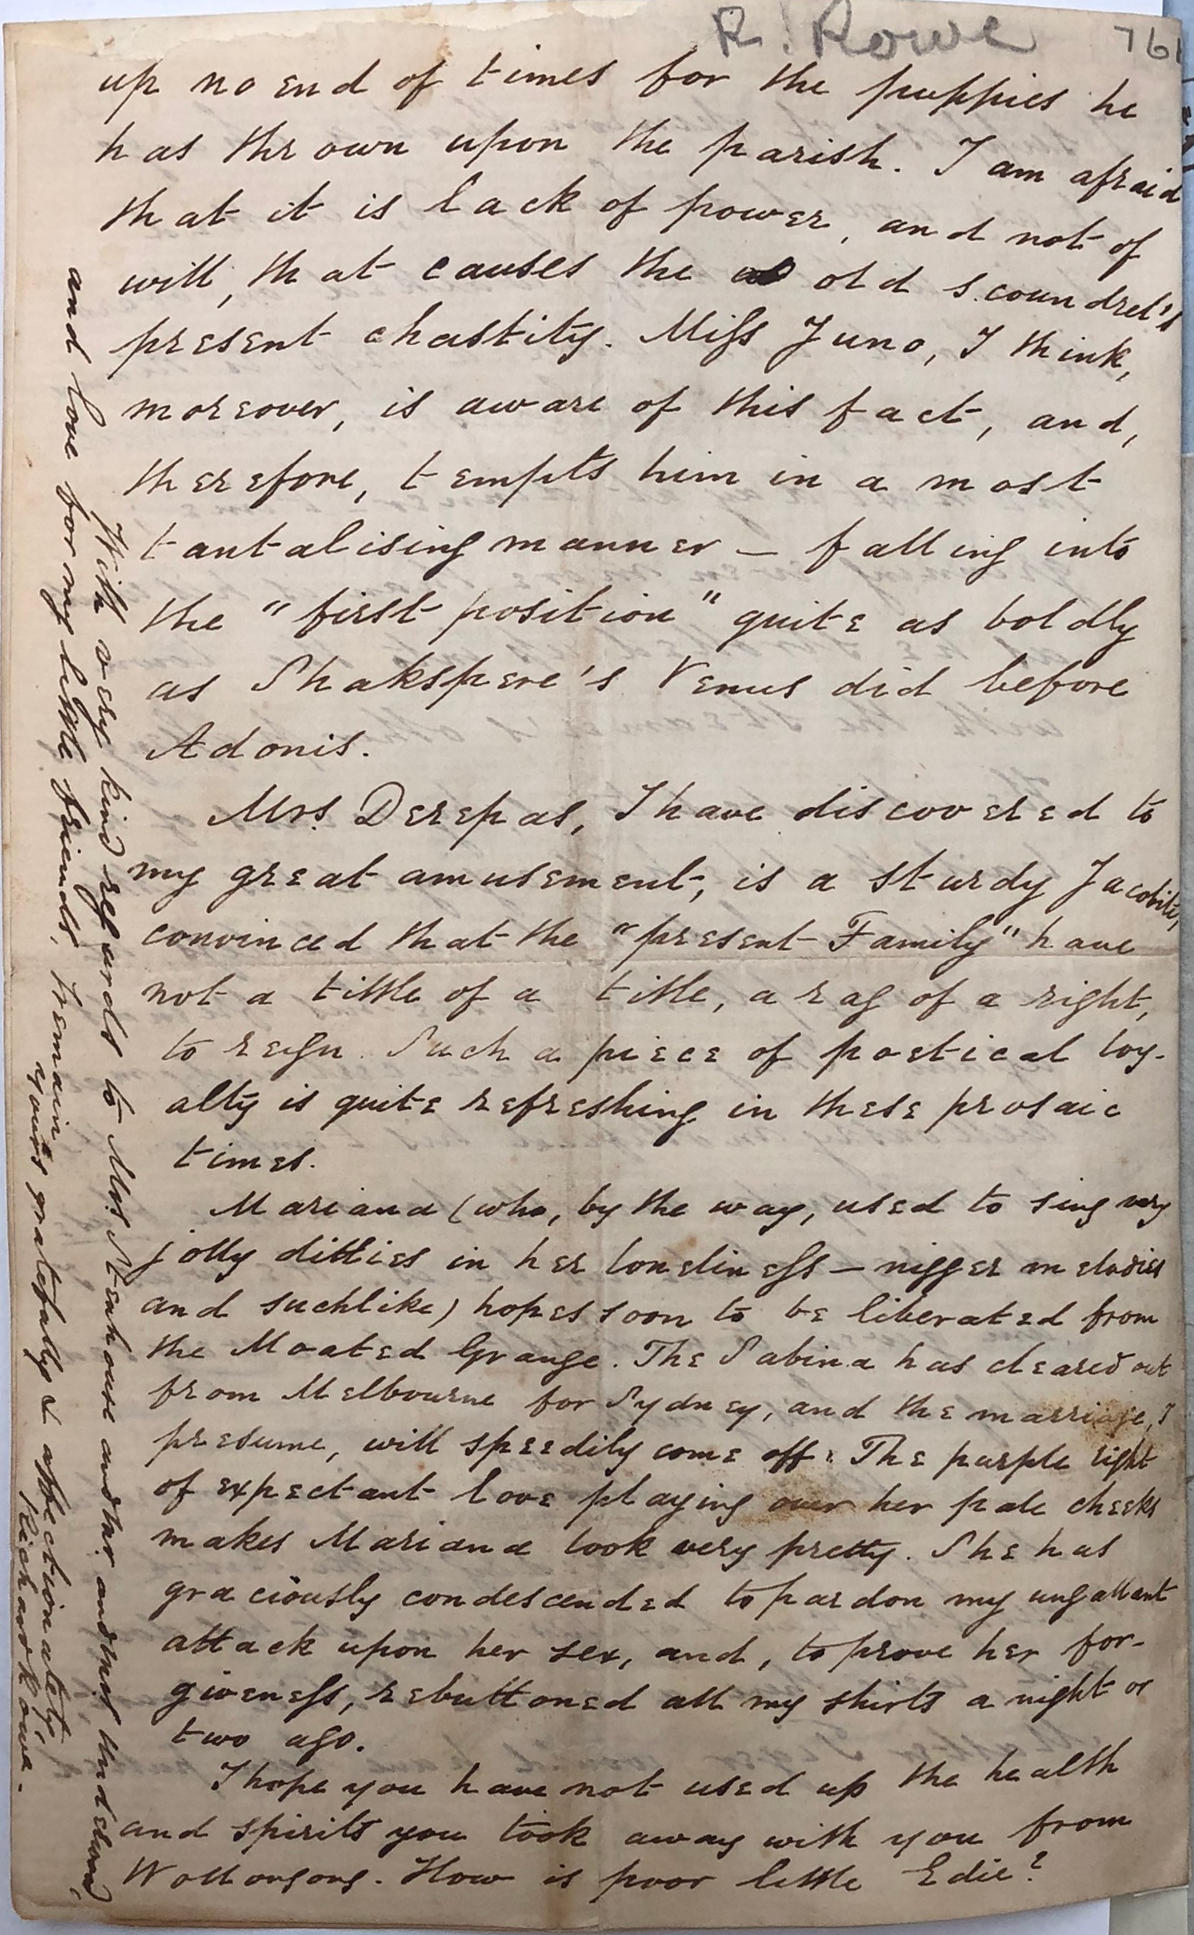 R. Rowe 761
up no end of times for the puppies he
has thrown upon the parish. I am afraid
that it is lack of power, and not of
will, that causes the old scoundrel's
present chastity. Miss Juno, I think,
moreover, is aware of this fact, and,
therefore, tempts him in a most
tantalising manner — falling into
the "first position" quite as boldly
as Shakspere's Venus did before
Adonis.
Mrs. Derepas, I have discovered to
my great amusement, is a sturdy Jacobite,
convinced that the "present Family" have
not a tittle of a title, a rag of a right,
to reign. Such a piece of poetical loy-
alty is quite refreshing in these prosaic
times.
Mariana (who, by the way, used to sing very
jolly ditties in her loneliness — nigger melodies
and suchlike) hopes soon to be liberated from
the Moated Grange. The Sabina has cleared out
from Melbourne for Sydney, and the marriage, I
presume, will speedily come off. The purple light
of expectant love playing over her pale cheeks
makes Mariana look very pretty. She has
graciously condescended to pardon my ungallant
attack upon her sex, and, to prove her for-
giveness, rebuttoned all my shirts a night or
two ago.
I hope you have not used up the health
and spirits you took away with you from
Wollongong. How is poor little Edie?
With very kind regards to Mrs. Stenhouse and Mr. and Mrs.
and love for my little friends, I remain
yours gratefully & affectionately,
Richard Rowe.